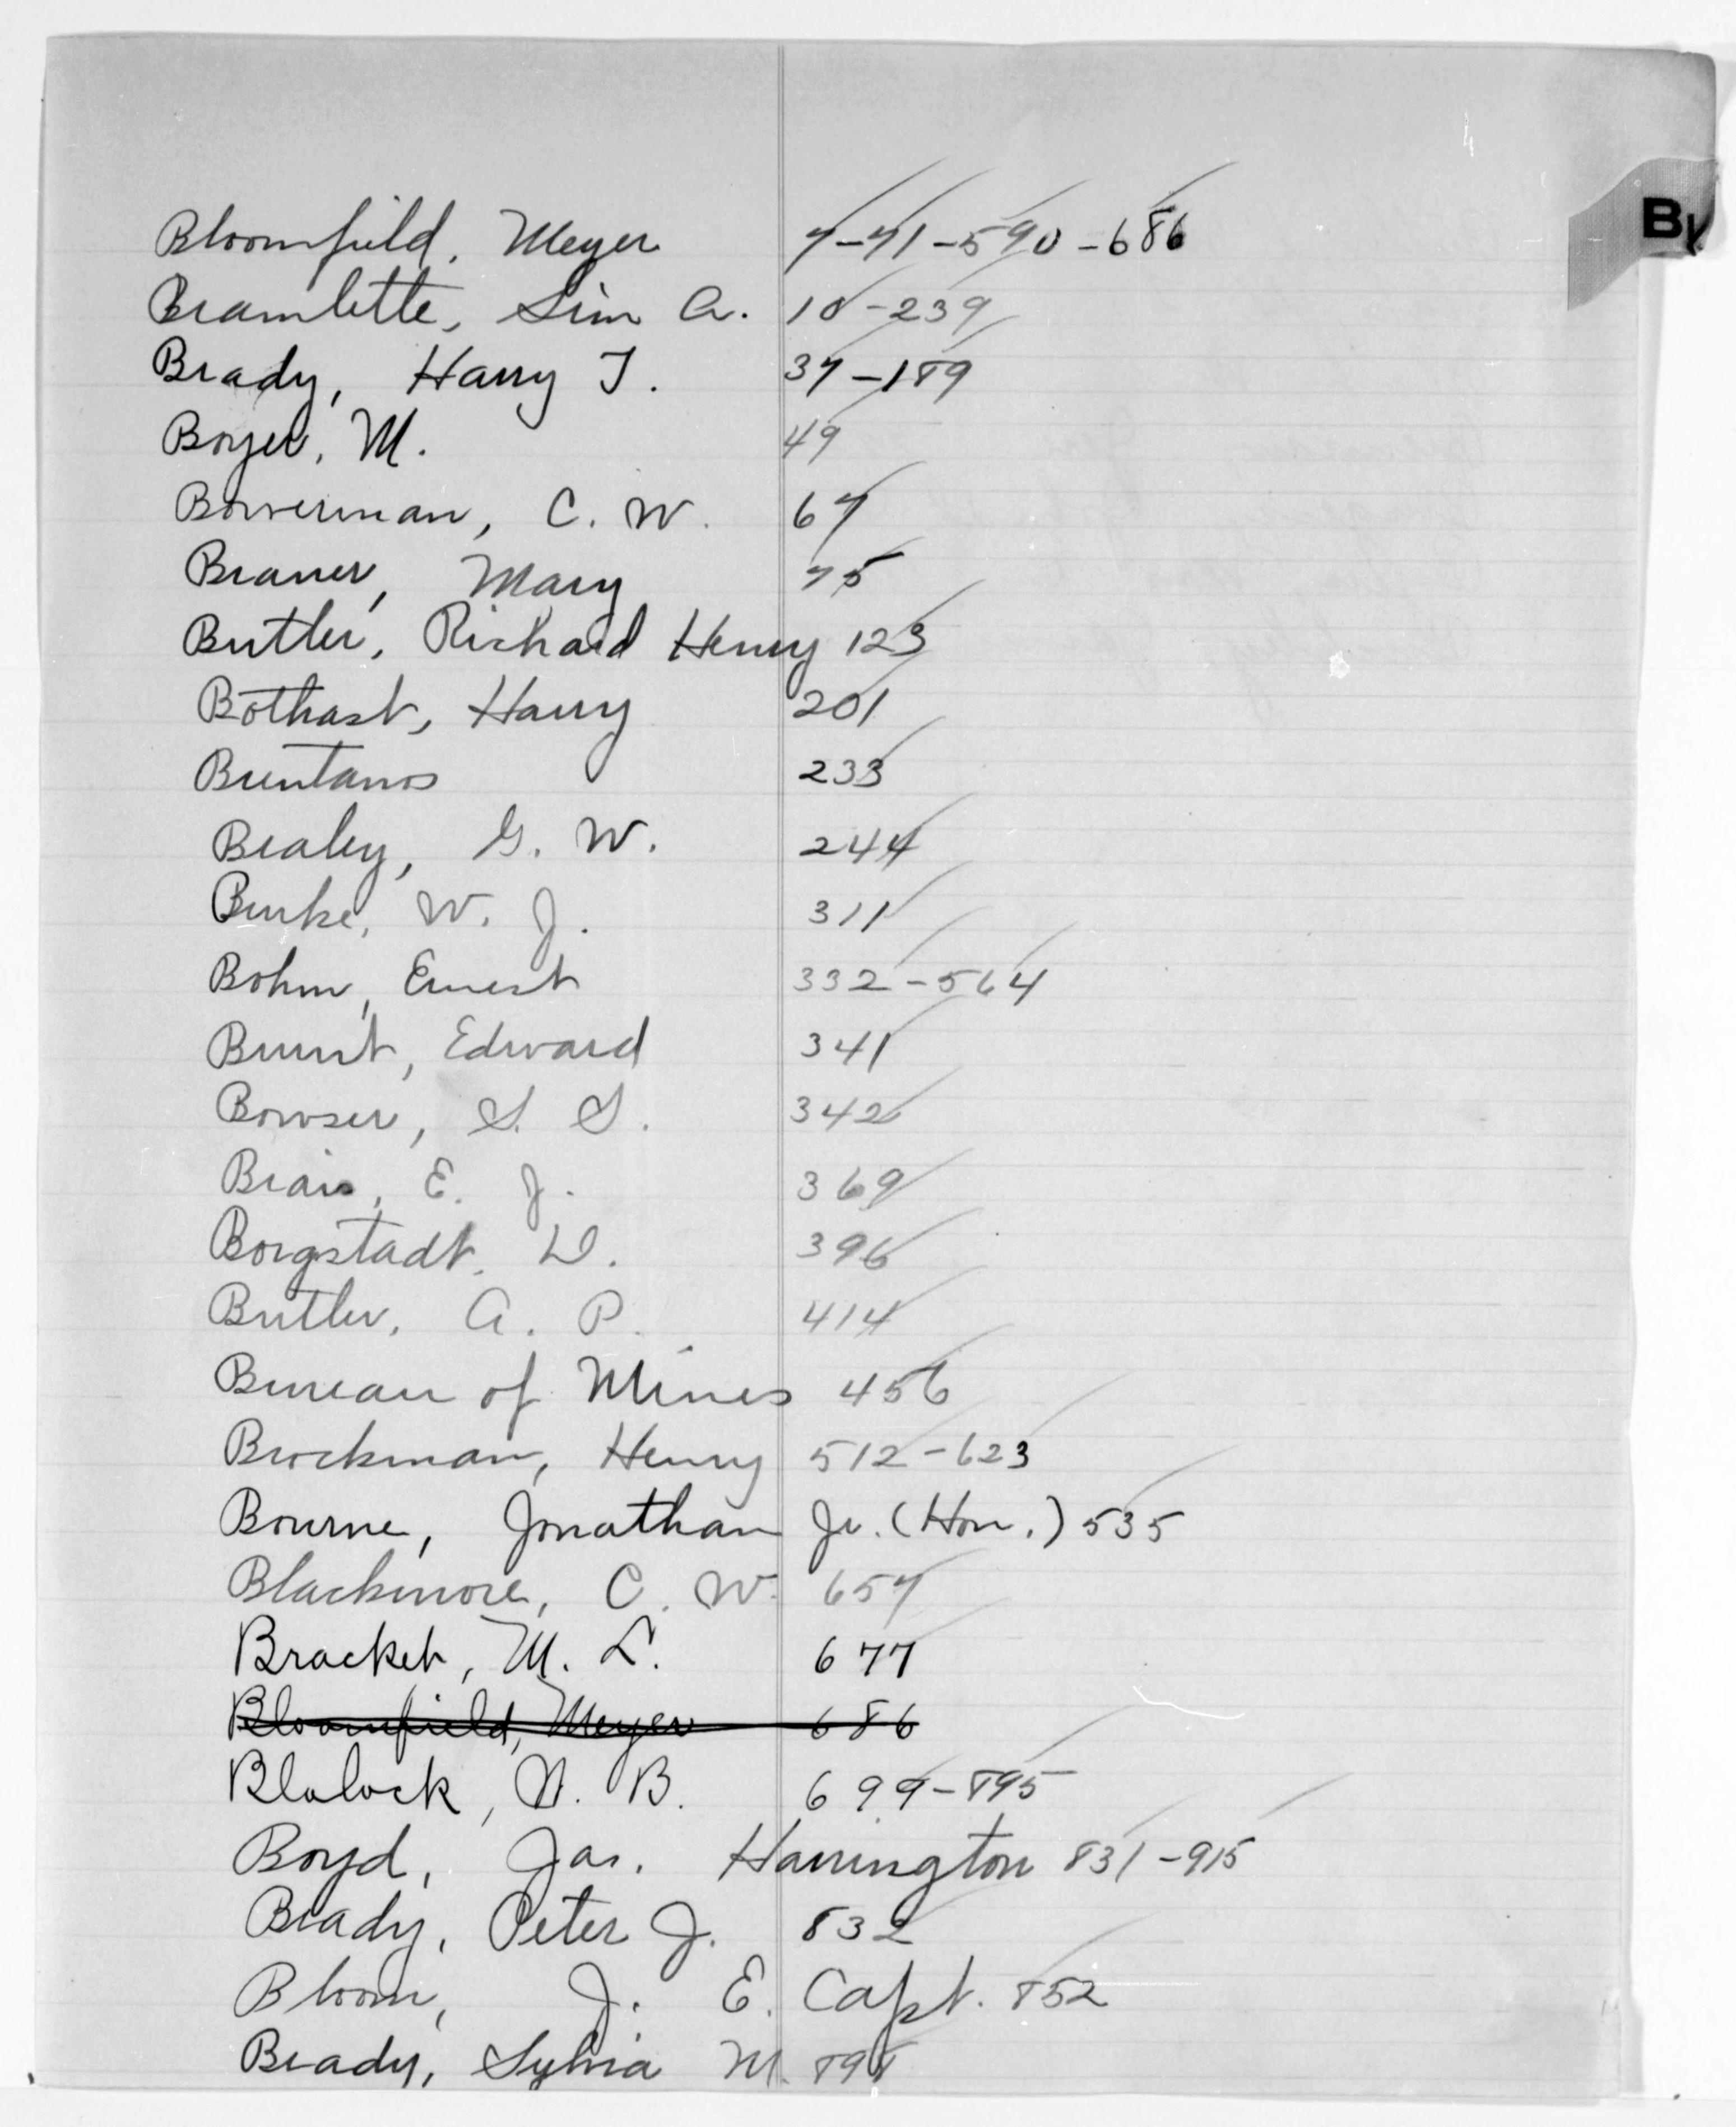 Bl
Bloomfield, Meyer 7-71-590-686
Bramlette, Sim A. 10-239
Brady, Harry T. 37-189
Boyer, M. 49
Bowerman, C. W. 67
Braner, Mary 75
Butler, Richard Henry 123
Bothast, Harry 201
Brentanos 233
Bealey, G. W. 244
Burke, W. J. 311
Bohm, Ernest 332-564
Burnt, Edward 341
Bowser, S. S. 342
Brais, E. J. 369
Borgstadt, D. 396
Butler, A. P. 414
Bureau of Mines 456
Brockman, Henry 512-623
Bourne, Jonathan Jr. (Hon.) 535
Blackmore, C. W. 657
Bracket, M. L. 677
Bloomfield, Meyer 686
Blalock, N. B. 699-895
Boyd, Jas. Harrington 831-915
Brady, Peter J. 832
Bloom, J. E. Capt. 852
Brady, Sylvia M. 898